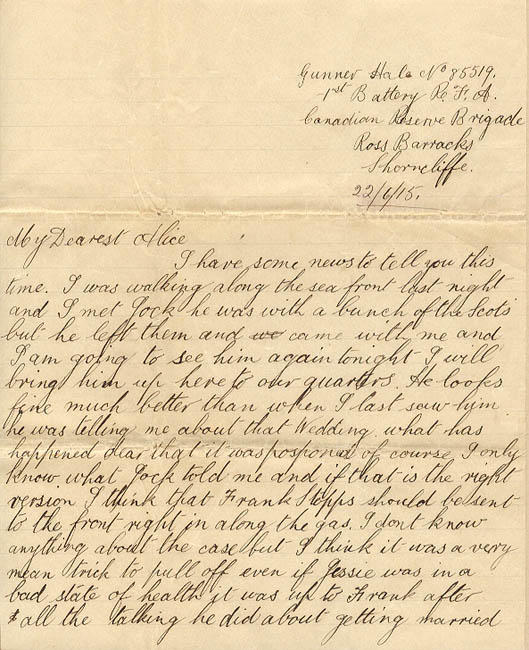 Gunner Hale No 85519.
1st Battery R. F. A.
Canadian Reserve Brigade
Ross Barracks
Shorncliffe.
22/6/15.
My Dearest Alice
I have some news to tell you this
time. I was walking along the sea front last night
and I met Jock he was with a bunch of the Scots
but he left them and we came with me and
I am going to see him again tonight I will
bring him up here to our quarters. He looks
fine much better than when I last saw him
he was telling me about that Wedding. what has
happened dear that it was posponed of course I only
know what Jock told me and if that is the right
version I think that Frank Stopps should be sent
to the front right in along the gas. I dont know
anything about the case but I think it was a very
mean trick to pull off even if Jessie was in a
bad state of health it was up to Frank after
all the talking he did about getting married